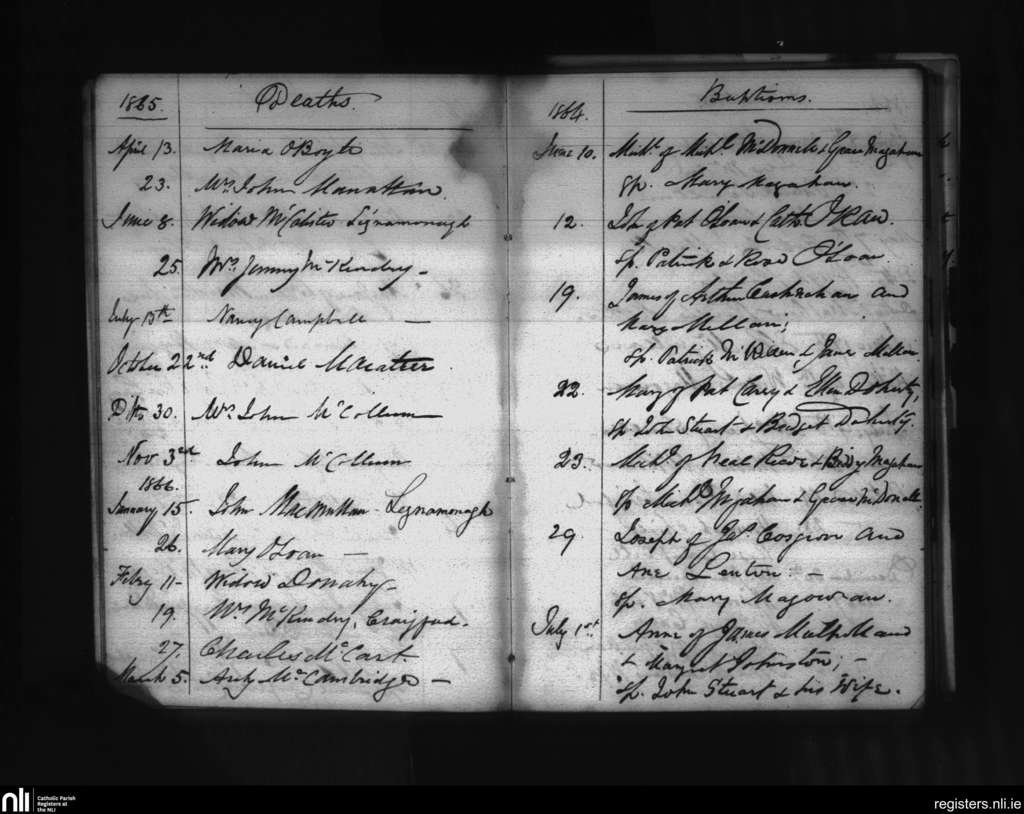 1865. Deaths.
April 13. Maria O'Boyle
23. Mrs. John Manattin
June 8. Widow McCalister Legnamonagh
25. Mrs. Jenny McKendry -
July 13th Nancy Campbell —
October 22nd Daniel
Do 30. Mrs. John McCollum
Nov 3rd John McCollum
1866.
January 15. John MacMullan - Legnamonagh
26. Mary O'Loan —
Feby 11 - Widow Donahy -
19. Mrs. McKindry, Craigfad -
27. Charles McCart.
March 5. Archy McCambridge —
1864. Baptisms.
June 10. Michl. of Michl. McDonnell & Grace Magahan
Sp. Mary Magahan.
12. Joh of Pat O'Loan & Cath.
Sp. Patrick & Rose O'Loan.
19. James of Arthur and
Mary Mellon;
Sp. Patrick & Jane Mellon
22. Mary of Pat Carey & Ellen Doherty,
Sp. John Stuart & Bridget Doherty.
23. Michl. of Neal & Biddy Magahan
Sp Michl. & Grace McDonell
29. Joseph of Jas. Cosgrove and
Ane Lenton. -
Sp. Mary Magowan.
July 1st. Anne of James and
& Margret Johnston; -
Sp. John Stuart & his Wife.
nli Catholic Parish
Registers at
the NLI
registers.nli.ie